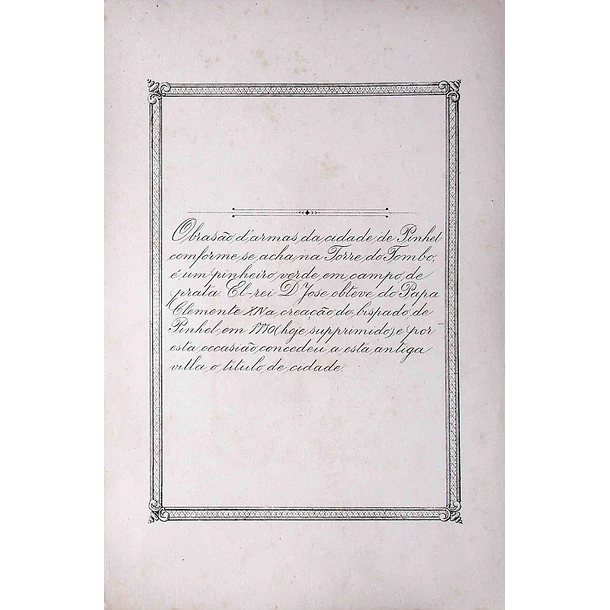 O brasão d'armas da cidade de Pinhel
comforme se acha na Torre do Tombo;
é um pinheiro verde em campo de
prata. El-rei D. José obteve do Papa
Clemente XIV a creação do bispado de
Pinhel em 1770 (hoje supprimido) e por
esta occasião concedeu a esta antiga
villa o titulo de cidade.